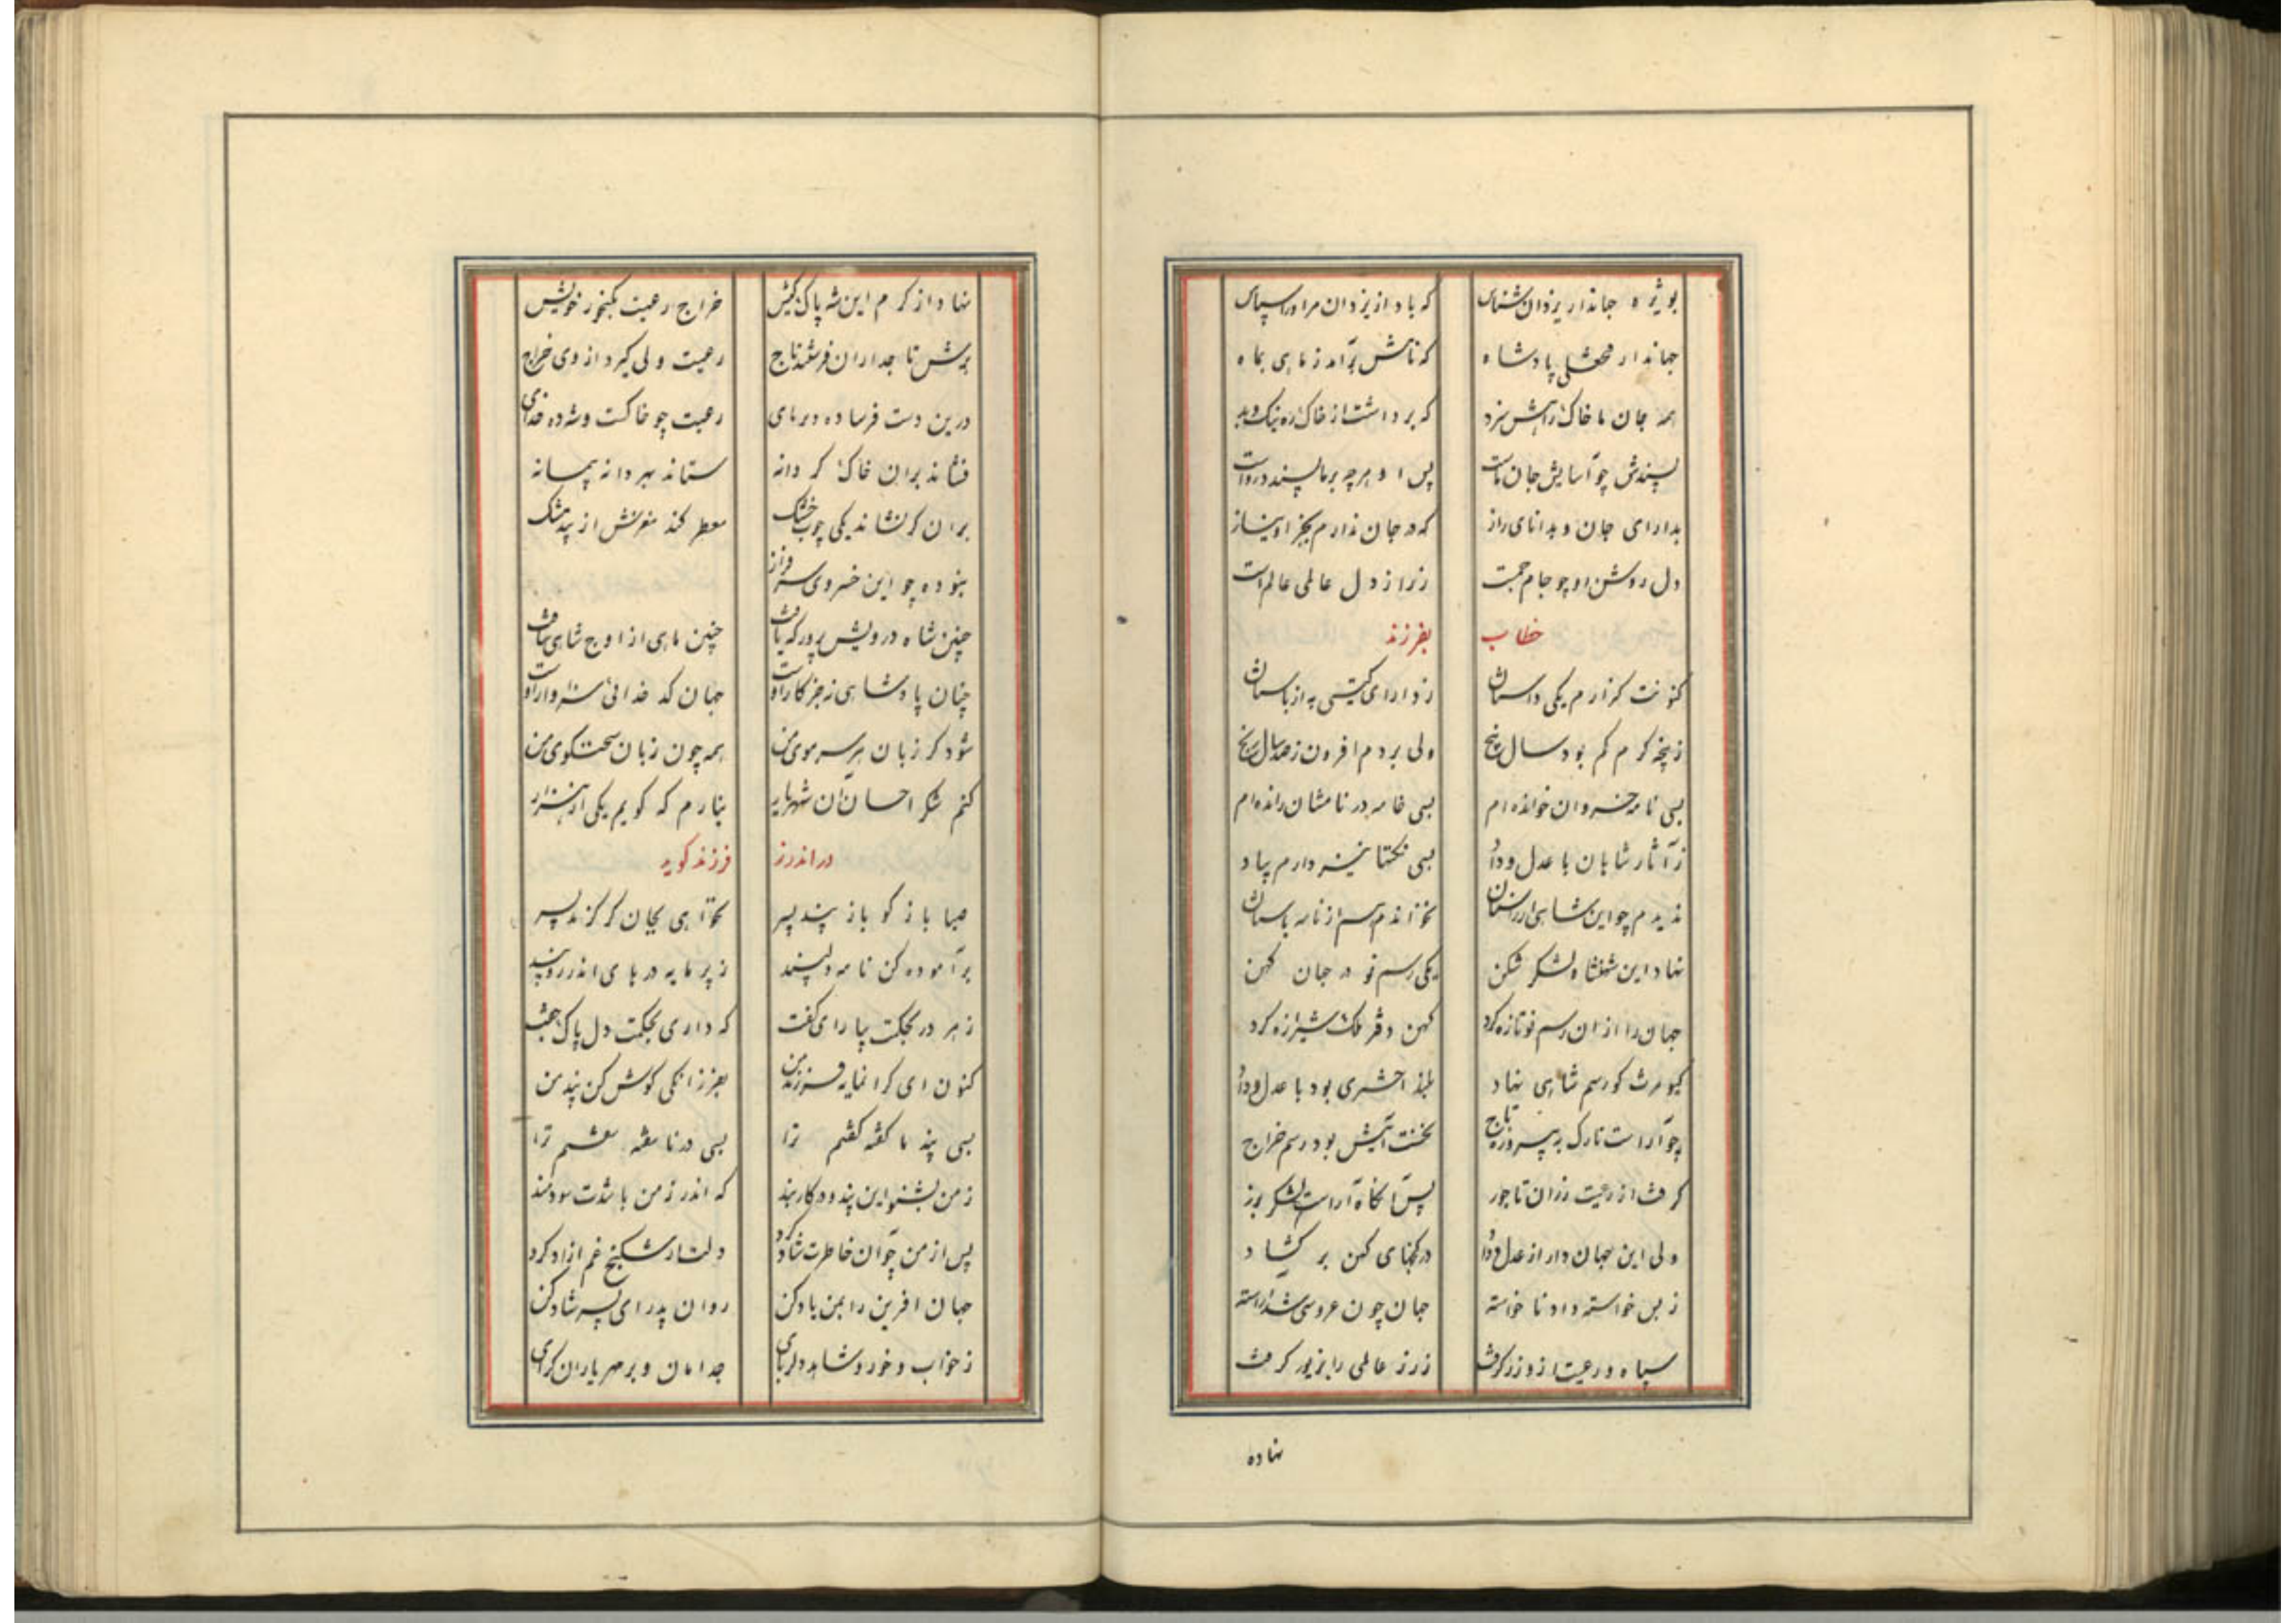 بویژه جهاندار یزدان شناس که باد از یزدان مر او را سپاس
جهاندار فتحعلی پادشاه که نامش برآمد ز ماهی بماه
همه جان ما خاک راهش سزد که برداشت از خاک ره نیک و بد
پسندش چو آسایش جان ماست پس او هرچه بر ما پسندد رواست
بدارای جان و بدانای راز که در جان ندارم بجز او نیاز
دل روشن او چو جام جمست ز راز دل عالمی عالم است
خطاب بفرزند
کنونت گزارم یکی داستان ز دارای گیتی به از باستان
ز پنجه گرم کم بود سال پنج ولی بردم افزون ز صد سال رنج
بسی نامه خسروان خوانده ام بسی خامه در نامشان رانده ام
ز آثار شاهان با عدل و داد بسی نکتها نیز دارم بیاد
ندیدم چو این شاهی از راستان نخواندم هم از نامه باستان
نهاد این شهنشاه لشکر شکن یکی رسم نو در جهان کهن
جهان را از آن رسم نو تازه کرد کهن دفتر ملک شیرازه کرد
کیومرث کو رسم شاهی نهاد بلند اختری بود با عدل و داد
چو آراست تارک به پیروزه تاج نخست آیتش بود رسم خراج
گرفت از رعیت زر آن تاجور پس آنگاه آراست لشکر بزر
ولی این جهان دار از عدل و داد در گنجهای کهن بر گشاد
ز بس خواسته داد ناخواسته جهان چون عروسی شد آراسته
سپاه و رعیت ازو زر گرفت ز زر عالمی را بزیور گرفت
نهاده
نهاد از کرم این شه پاک کیش خراج رعیت بگنجور خویش
برش تاجداران فرستند تاج رعیت ولی گیرد از وی خراج
درین دست فرساده دیرپای رعیت چو خاکست و شه ده خدای
فشاند بران خاک گر دانه ستاند بهر دانه پیمانه
بران گر نشاند یکی چوب خشک معطر کند مغزش از بید مشک
نبوده چو این خسروی سرفراز
چنین شاه درویش پرور که یافت چنین ماهی از اوج شاهی نتافت
چنان پادشاهی نه جز کار اوست جهان کدخدائی سزاوار اوست
شود گر زبان هر سر موی من همه چون زبان سخنگوی من
کنم شکر احسان آن شهریار نیارم که گویم یکی از هزار
در اندرز فرزند گوید
صبا باز گو باز پند پسر نخواهی بجان گر گزند پسر
برآموده کن نامه دلپسند ز پر مایه درهای اندرز و پند
ز هر در بحکمت بیارای گفت که داری بحکمت دل پاک جفت
کنون ای گرانمایه فرزند من بفرزانگی گوش کن پند من
بسی پند ناگفته گفتم ترا بسی در ناسفته سفتم ترا
ز من بشنو این پند و در کار بند که اندرز من باشدت سودمند
پس از من چو آن خاطرت شاد کرد دلت از شکنج غم آزاد کرد
جهان آفرین را بمن یاد کن روان پدر ای پسر شاد کن
ز خواب و خور و شاهد دلربای جدا مان و بر مهر یاران گرای